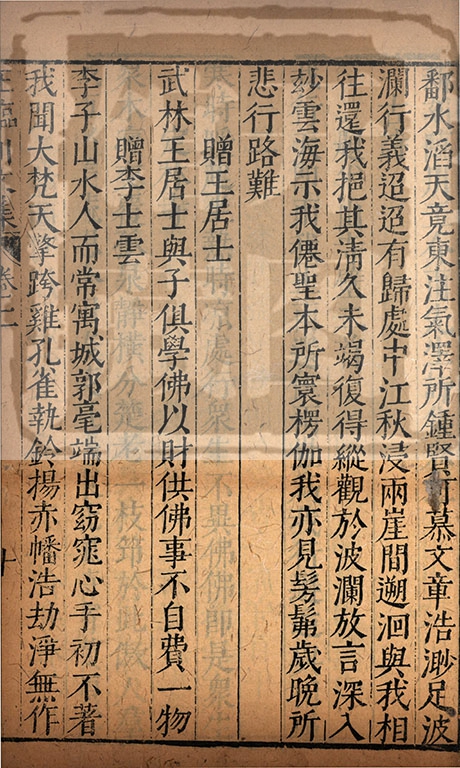 鄱水滔天竟東注氣澤所鍾賢可慕文章浩渺足波
瀾行義迢迢有歸處中江秋浸兩崖間遡洄與我相
往還我挹其清久未竭復得縱觀於波瀾放言深入
妙雲海示我僊聖本所寰楞伽我亦見髣髴歲晚所
悲行路難
贈王居士
武林王居士與子俱學佛以財供佛事不自費一物
贈李士雲
李子山水人而常寓城郭毫端出窈窕心手初不著
我聞大梵天擎跨雞孔雀執鈴揚赤幡浩劫淨無作
王臨川文集 卷二 十